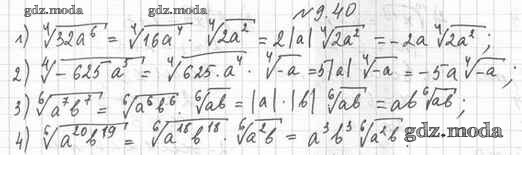 gdz.moda gdz.moda №9.40
1) ⁴√32a⁶ = ⁴√16a⁴ · ⁴√2a² = 2|a| ⁴√2a² = -2a ⁴√2a²;
2) ⁴√-625a⁵ = ⁴√625·a⁴ · ⁴√-a = 5|a| ⁴√-a = -5a ⁴√-a;
3) ⁶√a⁷b⁷ = ⁶√a⁶b⁶ · ⁶√ab = |a|·|b| ⁶√ab = ab ⁶√ab;
4) ⁶√a²⁰b¹⁹ = ⁶√a¹⁸b¹⁸ · ⁶√a²b = a³b³ ⁶√a²b.
gdz.moda